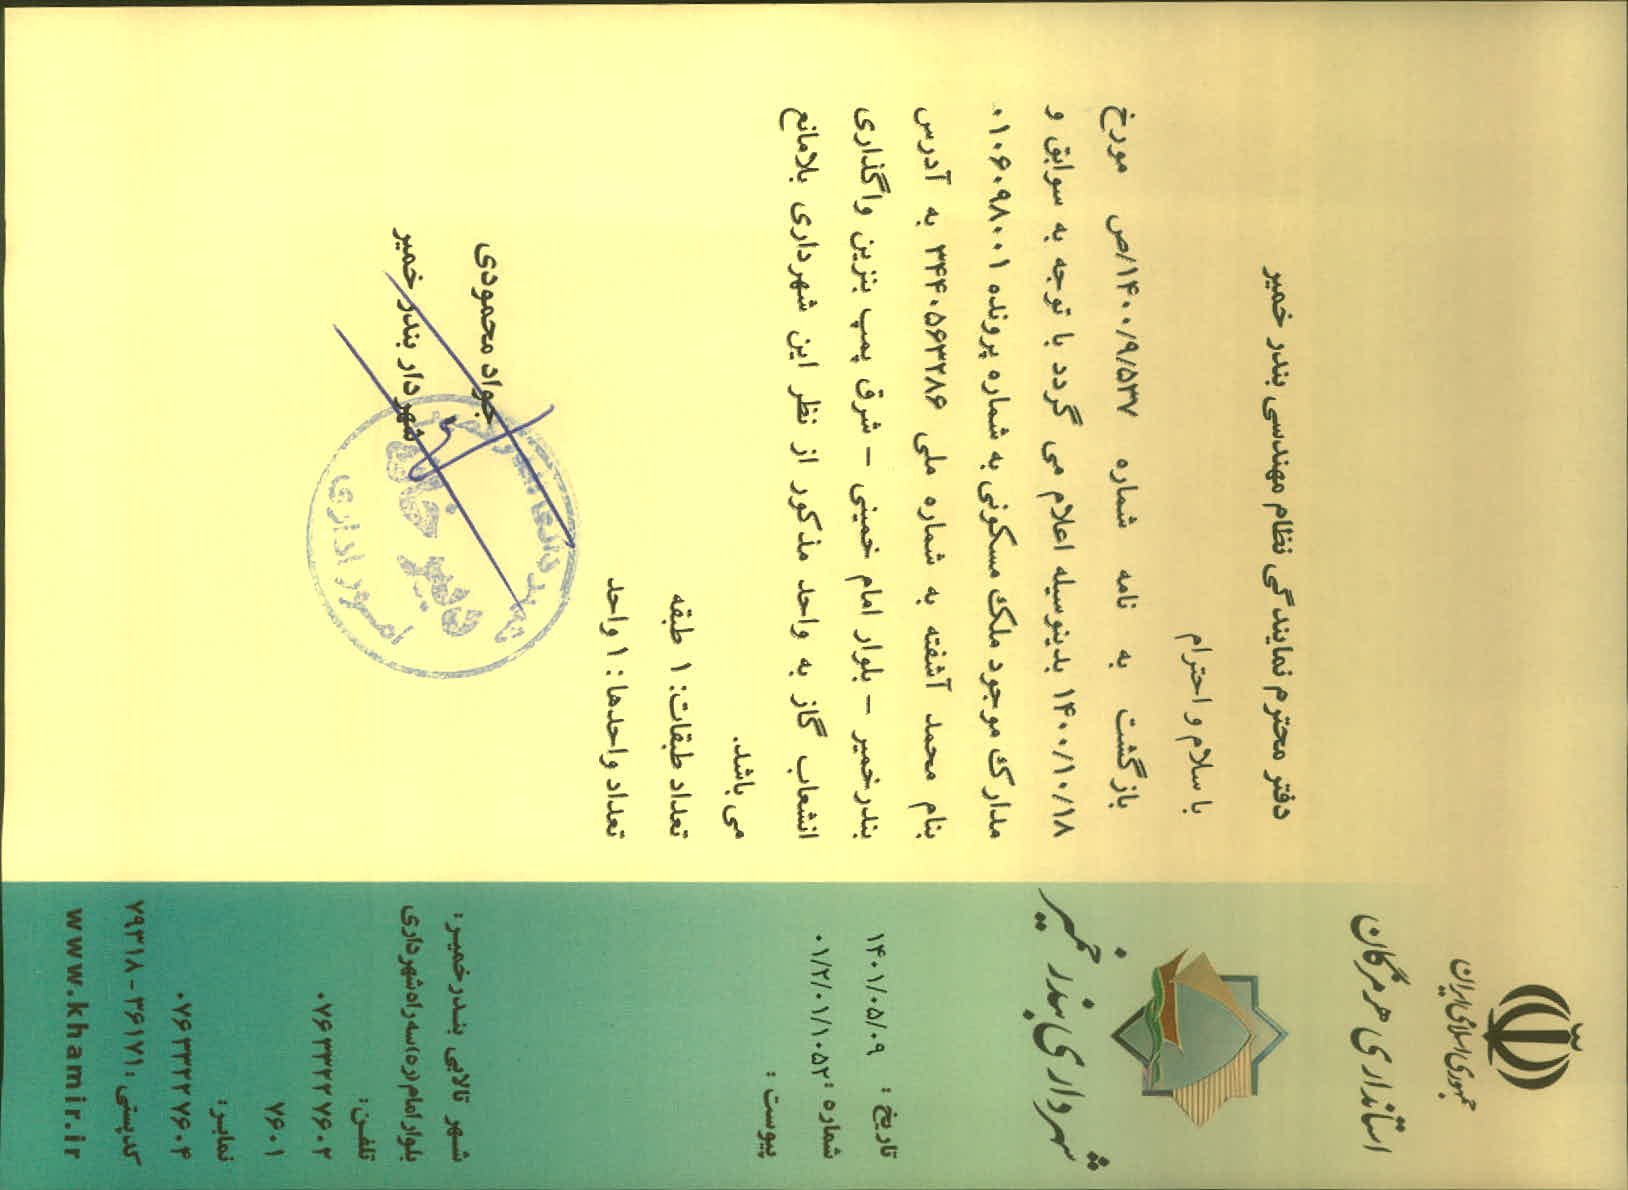 جمهوری اسلامی ایران
استانداری هرمزگان
شهرداری بندر خمیر
تاریخ : ۱۴۰۱/۰۵/۰۹
شماره : ۰۱/۲/۰۱/۱۰۵۲
پیوست :
دفتر محترم نمایندگی نظام مهندسی بندر خمیر
با سلام و احترام
بازگشت به نامه شماره ۱۴۰۰/۹/۵۳۷/ص مورخ
۱۴۰۰/۱۰/۱۸ بدینوسیله اعلام می گردد با توجه به سوابق و
مدارک موجود ملک مسکونی به شماره پرونده ۰۱۰۶۰۹۸۰۰۱
بنام محمد آشفته به شماره ملی ۳۴۴۰۵۶۳۲۸۶ به آدرس
بندرخمیر – بلوار امام خمینی – شرق پمپ بنزین واگذاری
انشعاب گاز به واحد مذکور از نظر این شهرداری بلامانع
می باشد.
تعداد طبقات: ۱ طبقه
تعداد واحدها : ۱ واحد
جواد محمودی
شهردار بندر خمیر
امور اداری
شهر تالابی بندرخمیر:
بلوار امام(ره)سه راه شهرداری
تلفن:
۰۷۶۳۳۲۲۷۶۰۲
۷۶۰۱
نمابر:
۰۷۶۳۳۲۲۷۶۰۴
کدپستی : ۷۹۳۱۸-۳۶۱۷۱
www.khamir.ir